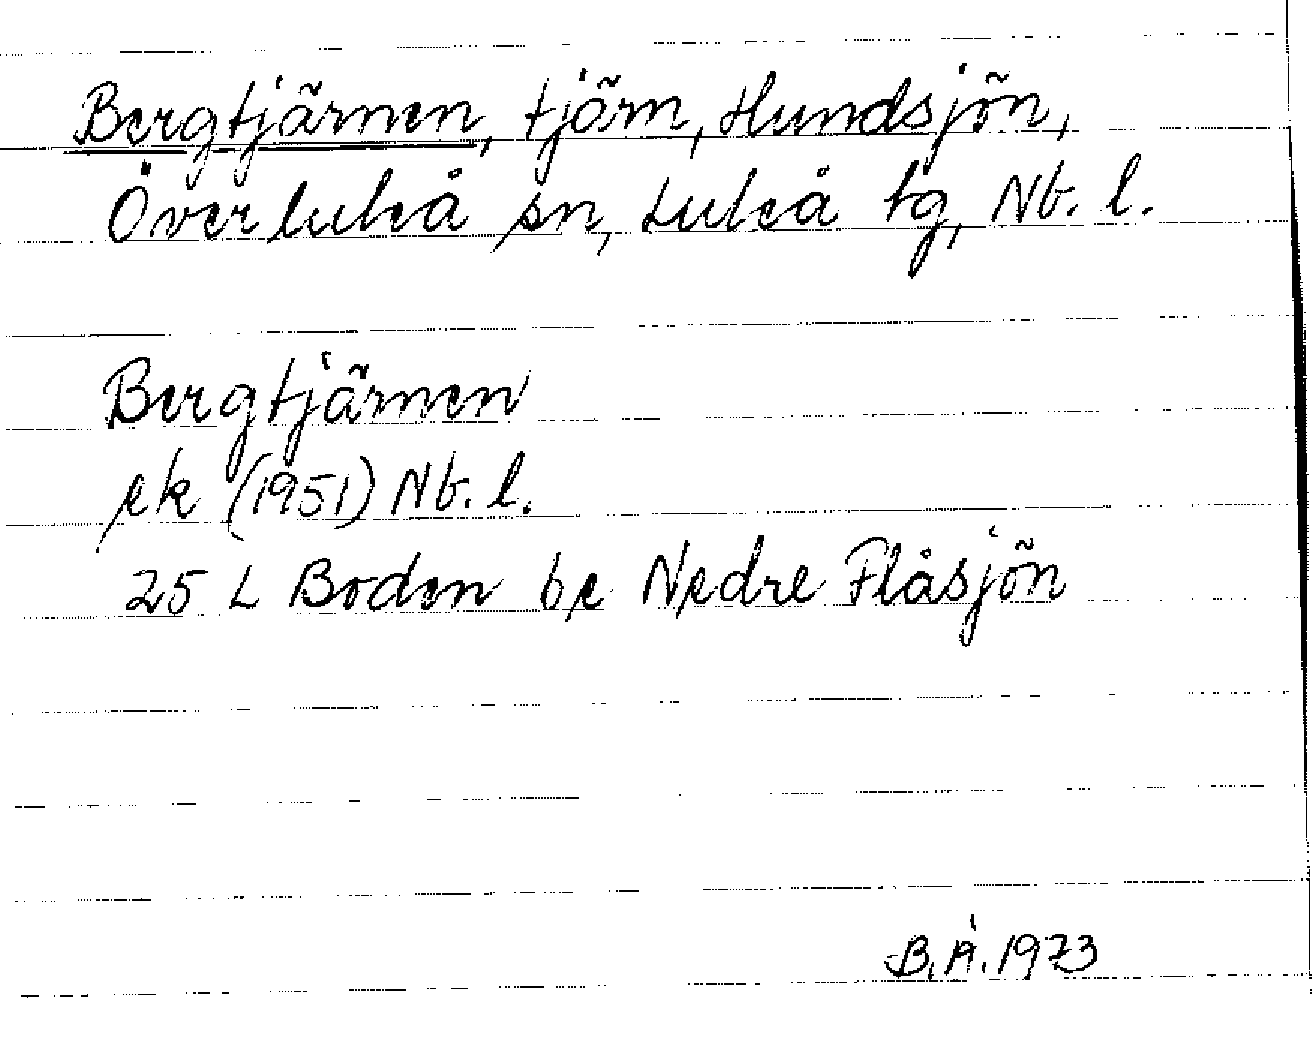 Bergtjärnen, tjärn, Hundsjön,
Överluleå sn, Luleå tg, Nb. l.
Bergtjärnen
ek (1951) Nb. l.
25 L Boden be Nedre Flåsjön
B.Å. 1973